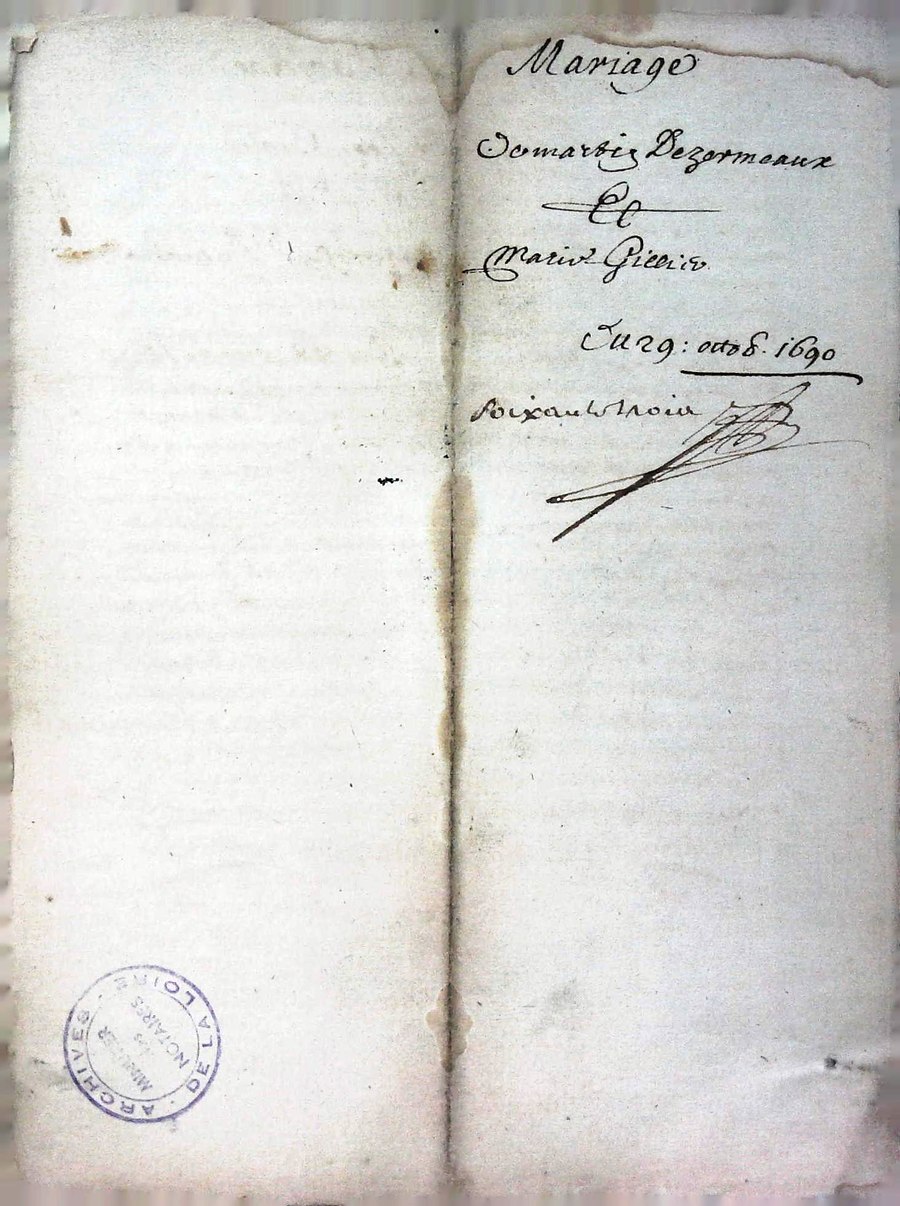 Mariage
De martin Dezormeaux
Et
Marie Gillier
Du 29: octob. 1690
soixante trois
ARCHIVES DE LA LOIRE
MINUTIER
DES
NOTAIRES